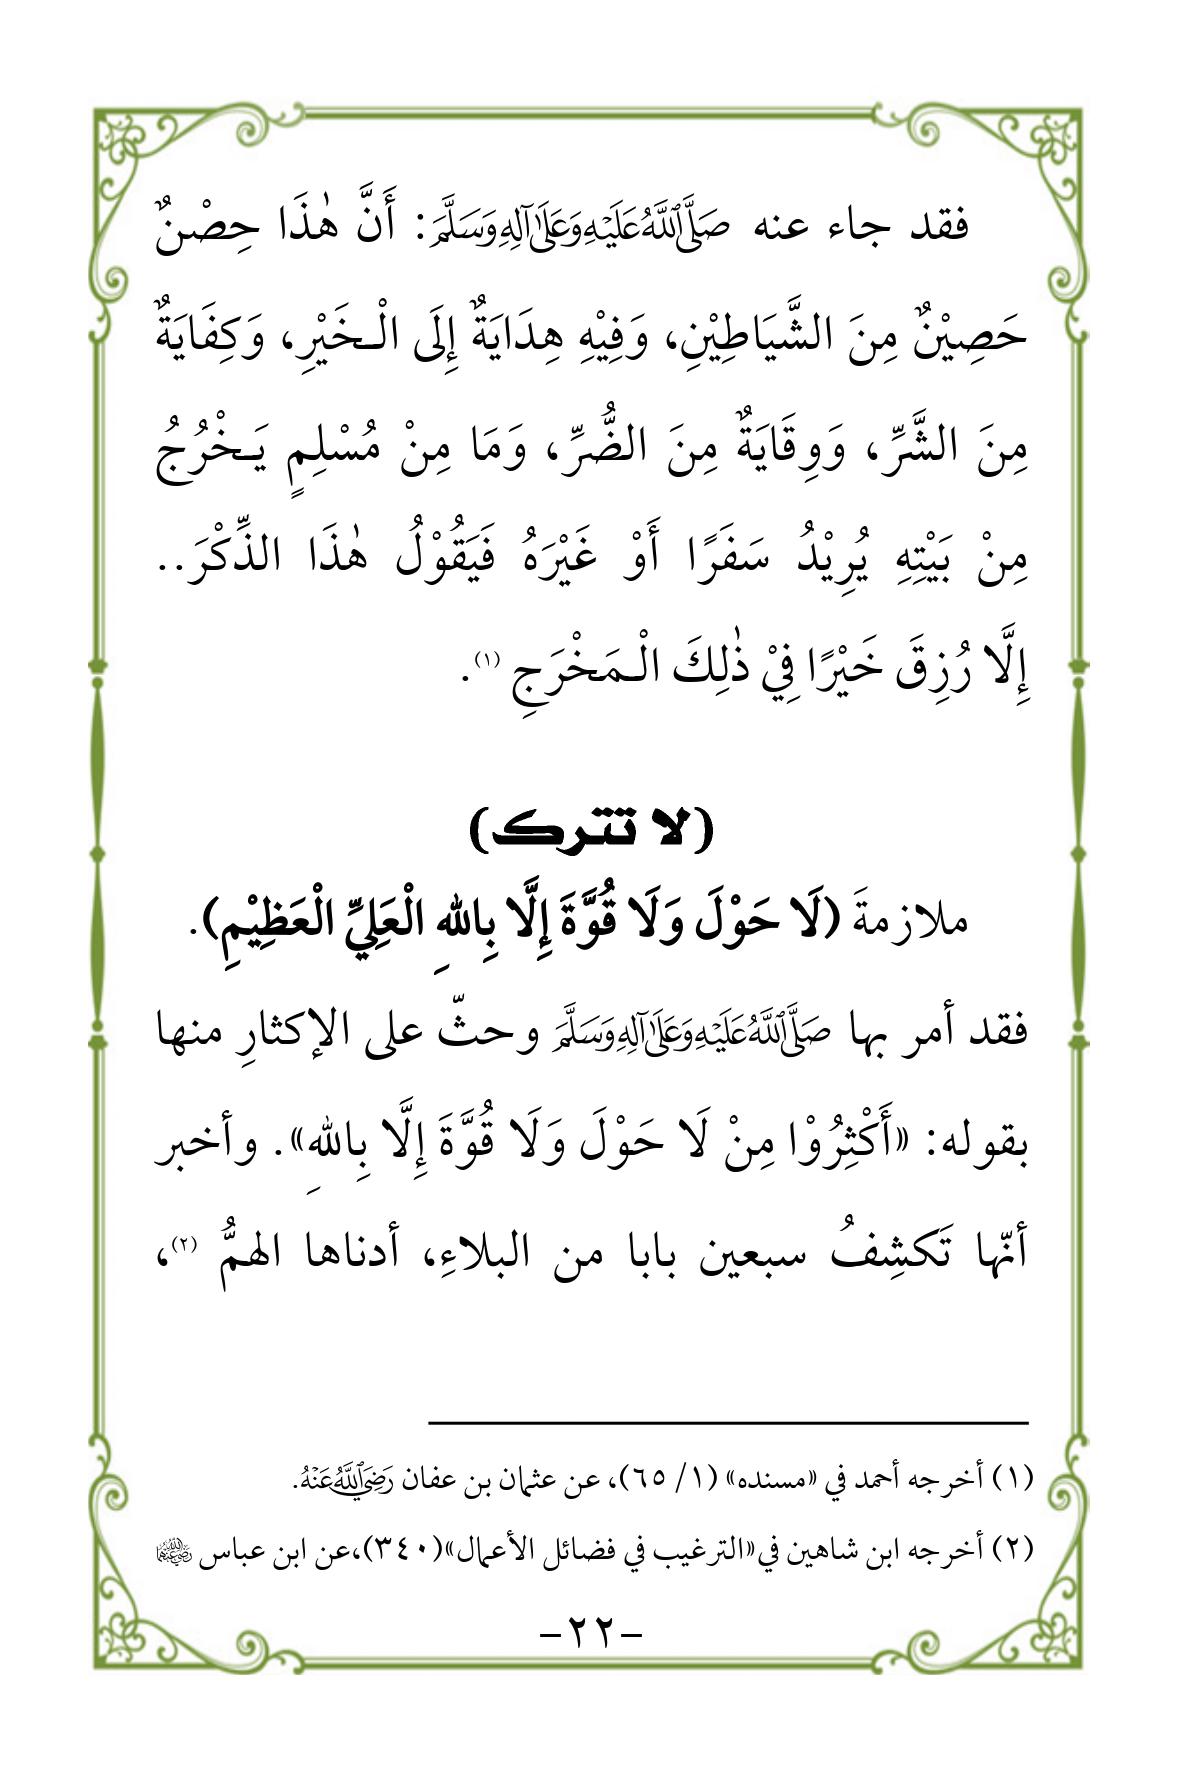 فقد جاء عنه صَلَّى اللَّهُ عَلَيْهِ وَعَلَىٰ آلِهِ وَسَلَّمَ: أَنَّ هٰذَا حِصْنٌ
حَصِيْنٌ مِنَ الشَّيَاطِيْنِ، وَفِيْهِ هِدَايَةٌ إِلَى الْـخَيْرِ، وَكِفَايَةٌ
مِنَ الشَّرِّ، وَوِقَايَةٌ مِنَ الضُّرِّ، وَمَا مِنْ مُسْلِمٍ يَـخْرُجُ
مِنْ بَيْتِهِ يُرِيْدُ سَفَرًا أَوْ غَيْرَهُ فَيَقُوْلُ هٰذَا الذِّكْرَ..
إِلَّا رُزِقَ خَيْرًا فِيْ ذٰلِكَ الْـمَخْرَجِ (١).
(لا تترك)
ملازمةَ (لَا حَوْلَ وَلَا قُوَّةَ إِلَّا بِاللهِ الْعَلِيِّ الْعَظِيْمِ).
فقد أمر بها صَلَّى اللَّهُ عَلَيْهِ وَعَلَىٰ آلِهِ وَسَلَّمَ وحثّ على الإكثارِ منها
بقوله: «أَكْثِرُوْا مِنْ لَا حَوْلَ وَلَا قُوَّةَ إِلَّا بِاللهِ». وأخبر
أنّها تَكشِفُ سبعين بابا من البلاءِ، أدناها الهمُّ (٢)،
(١) أخرجه أحمد في «مسنده» (١/ ٦٥)، عن عثمان بن عفان رَضِيَ اللَّهُ عَنْهُ.
(٢) أخرجه ابن شاهين في«الترغيب في فضائل الأعمال»(٣٤٠)،عن ابن عباس رضي الله عنهما
-٢٢-